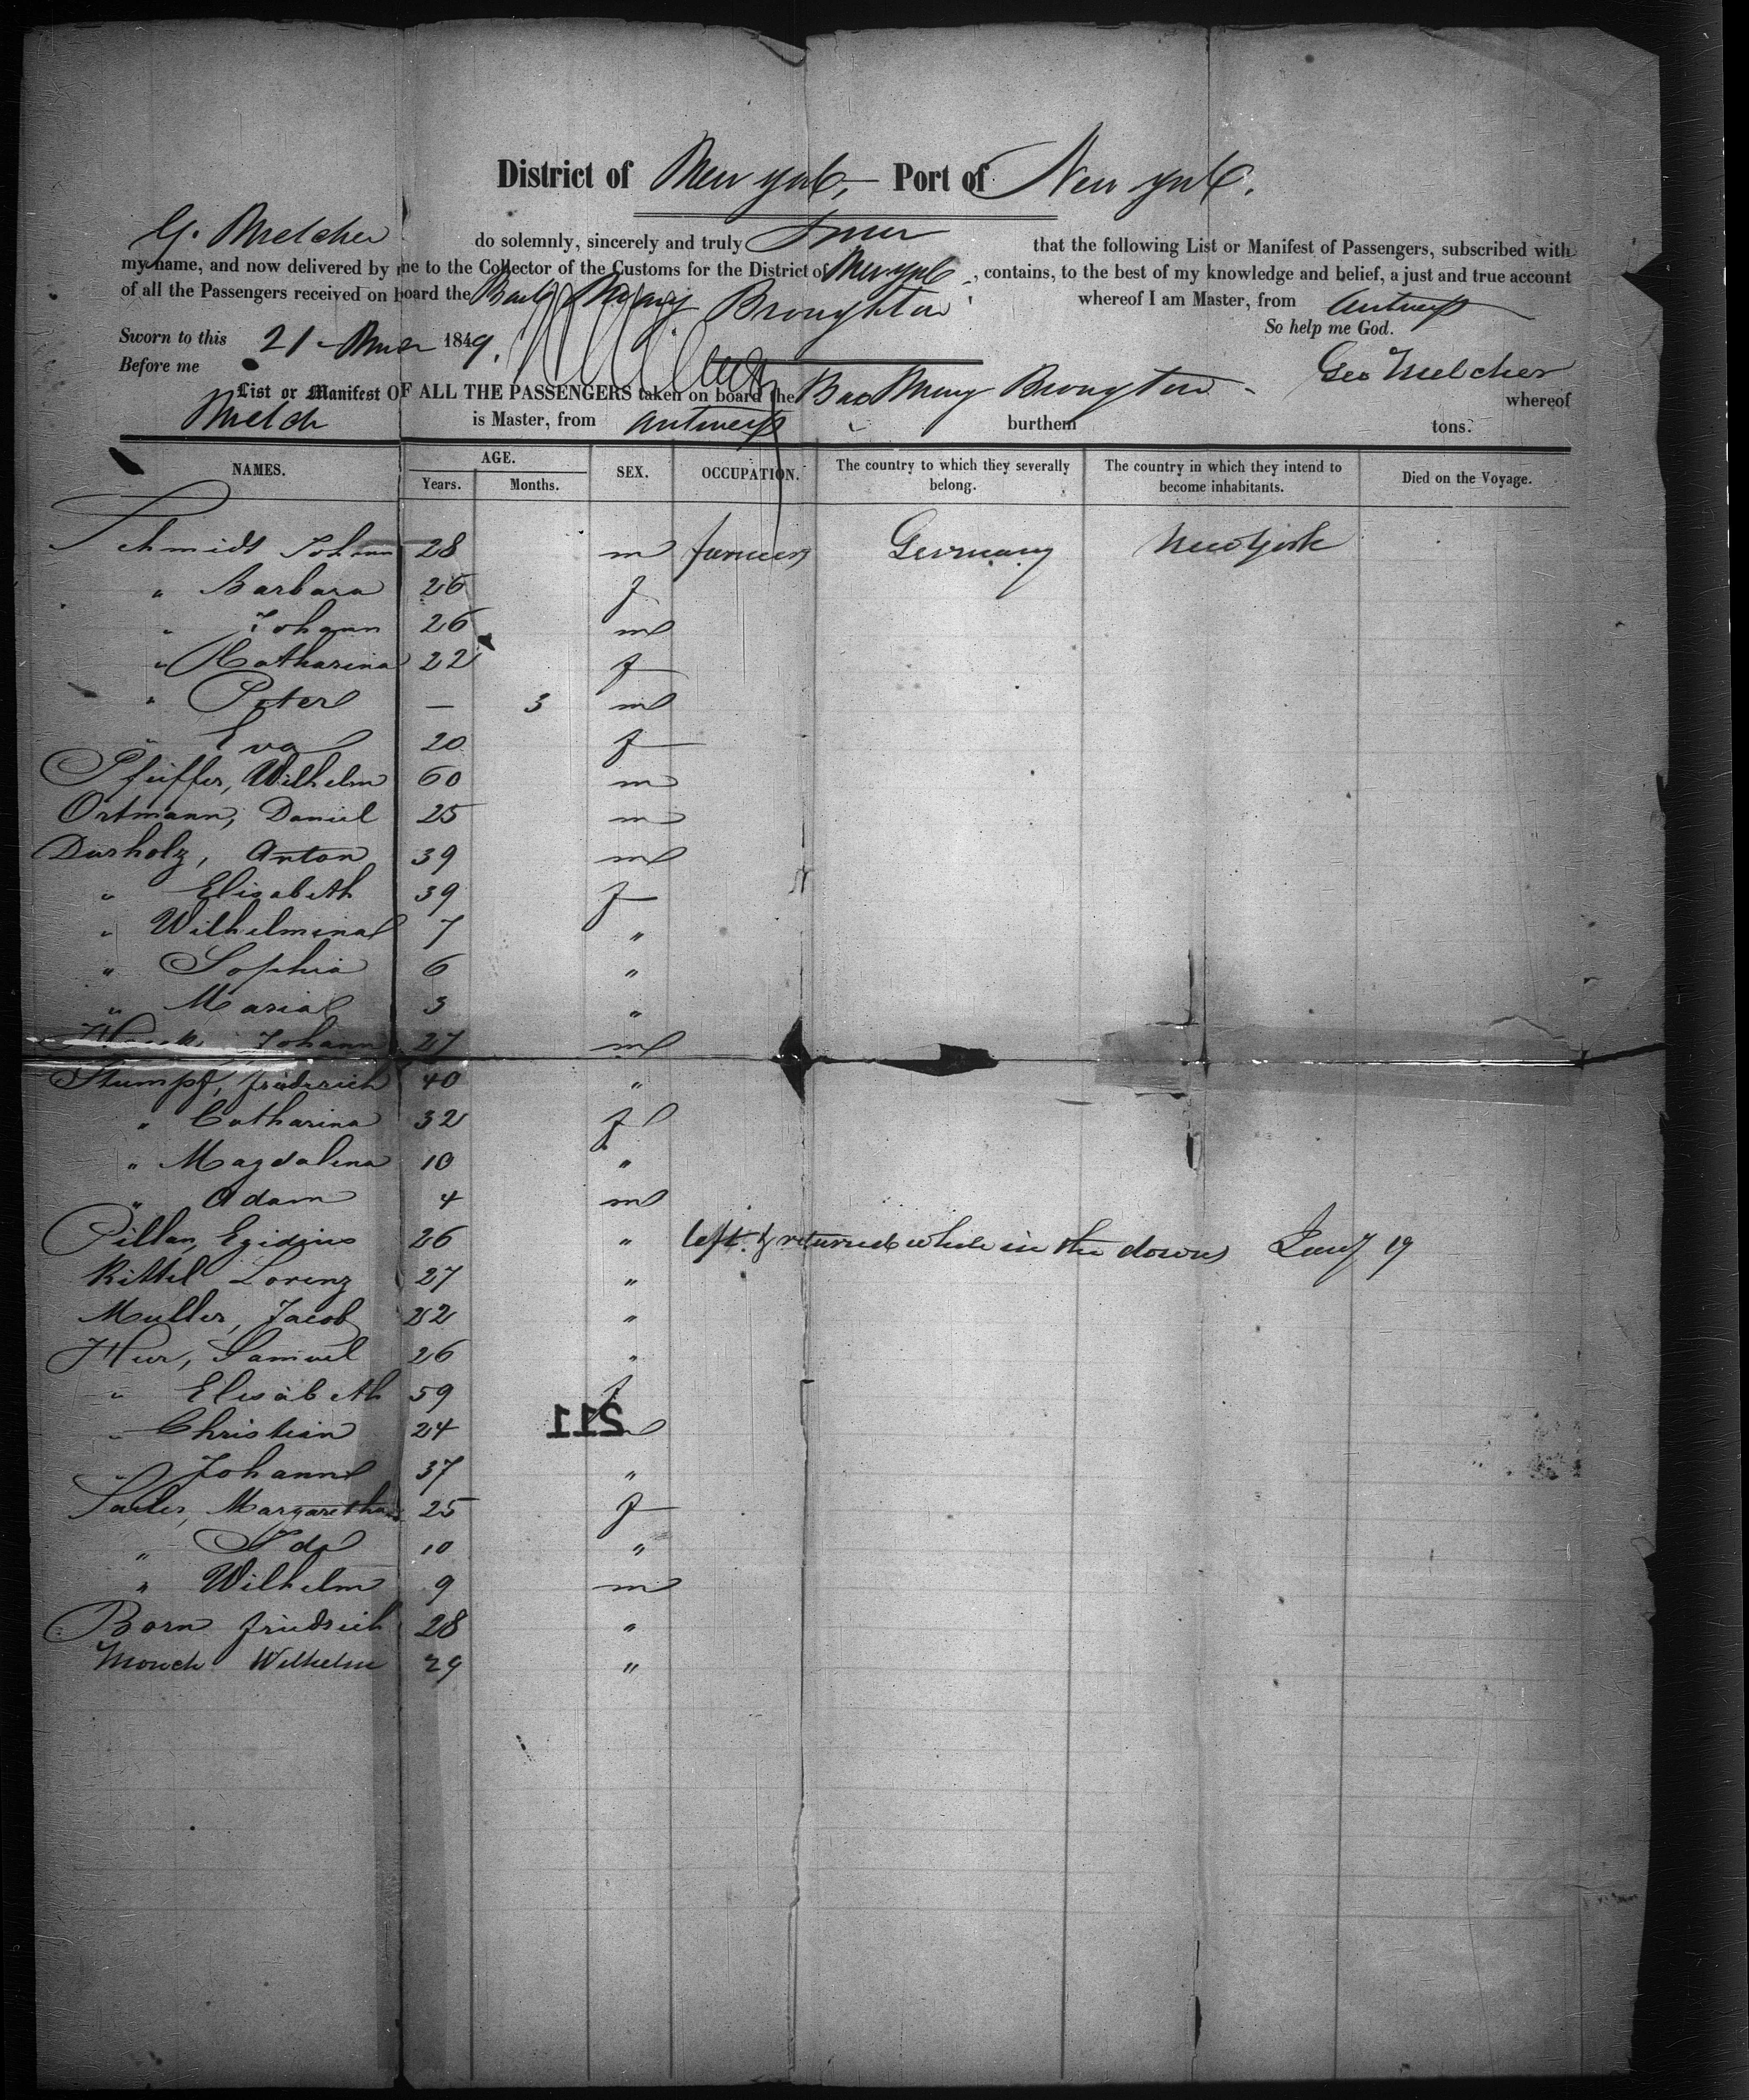 District of New york, Port of New york.
G. Melcher do solemnly, sincerely and truly swear that the following List or Manifest of Passengers, subscribed with
my name, and now delivered by me to the Collector of the Customs for the District of New york, contains, to the best of my knowledge and belief, a just and true account
of all the Passengers received on board the Bark Mary Broughton whereof I am Master, from Antwerp
So help me God.
Sworn to this 21 1849.
Before me Geo Melcher
List or Manifest OF ALL THE PASSENGERS taken on board the Bark Mary Broughton whereof
Melcher is Master, from Antwerp burthem tons.
NAMES. AGE. SEX. OCCUPATION. The country to which they severally belong. The country in which they intend to become inhabitants. Died on the Voyage.
Years. Months.
Schmidt Johann 28 m farmers Germany New York
" Barbara 26 f
" Johann 26 m
" Catharina 22 f
" Peter — 3 m
" Eva 20 f
Pfeiffer, Wilhelm 60 m
Ortmann, Daniel 25 m
Dusholz, Anton 39 m
" Elisabeth 39 f
" Wilhelmina 7 "
" Sophia 6 "
" Maria 3 "
Johann 27 m
Stumpf, friederich 40 "
" Catharina 32 f
" Magdalena 10 "
" Adam 4 m
Pillan, Egidius 26 " left & returned while in the downs Jany 19
Rittel Lorenz 27 "
Muller, Jacob 22 "
Hur, Samuel 26 "
" Elisabeth 59 f
" Christian 24 m
211
" Johann 37 "
Sailer, Margaretha 25 f
" Ida 10 "
" Wilhelm 9 m
Born friedrich 28 "
Monch Wilhelm 29 "